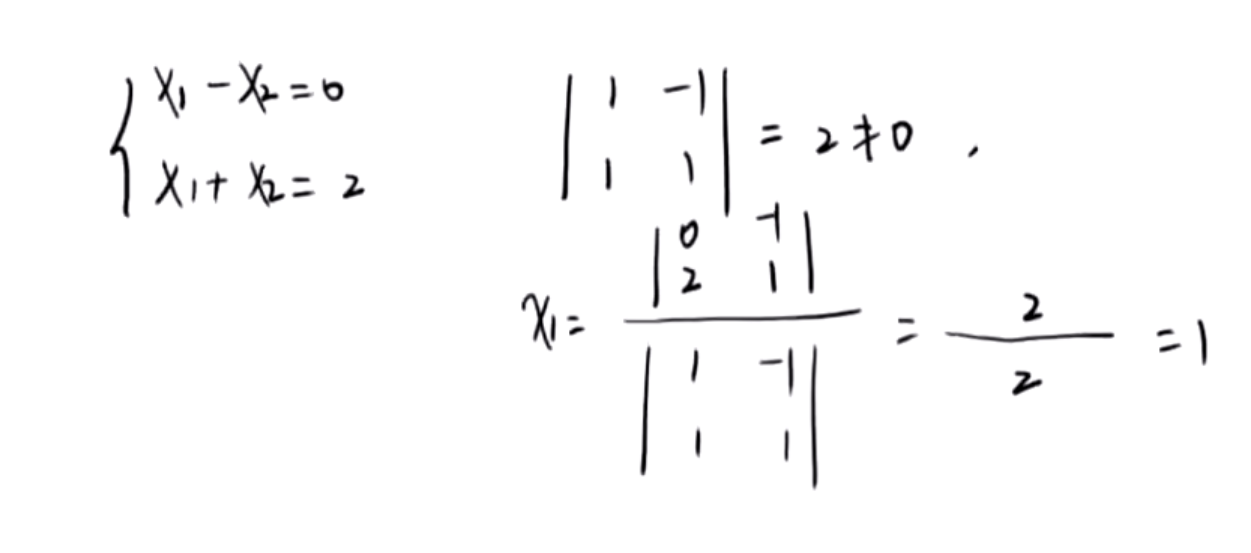 { x₁ - x₂ = 0
x₁ + x₂ = 2
| 1 -1 |
| 1 1 | = 2 ≠ 0 ,
x₁ = | 0 -1 |
| 2 1 |
/
| 1 -1 |
| 1 1 |
= 2 / 2 = 1